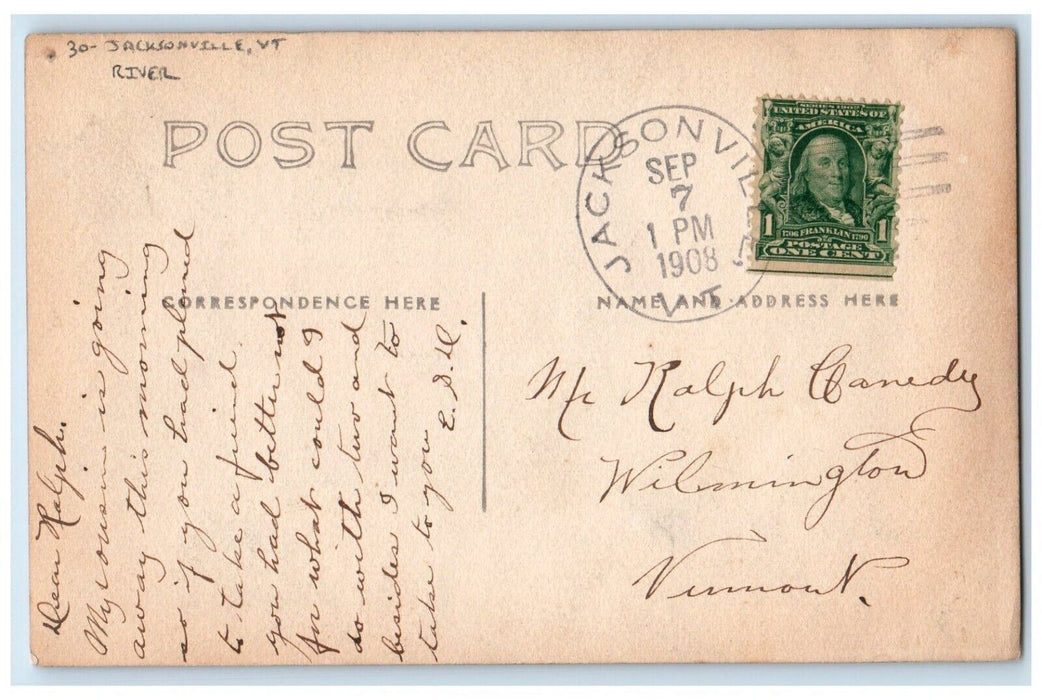 30- JACKSONVILLE, VT
RIVER
POST CARD
JACKSONVILLE
SEP
7
1 PM
1908
VT
SERIES 1902
UNITED STATES OF
AMERICA
1706 FRANKLIN 1790
1 POSTAGE 1
ONE CENT
CORRESPONDENCE HERE
NAME AND ADDRESS HERE
Dear Ralph.
My cousin is going
away this morning
so if you had planed
to take a friend
you had better not
for what could I
do with two and
besides I want to
take to you
E.D.
Mr Ralph Canedy
Wilmington
Vermont.